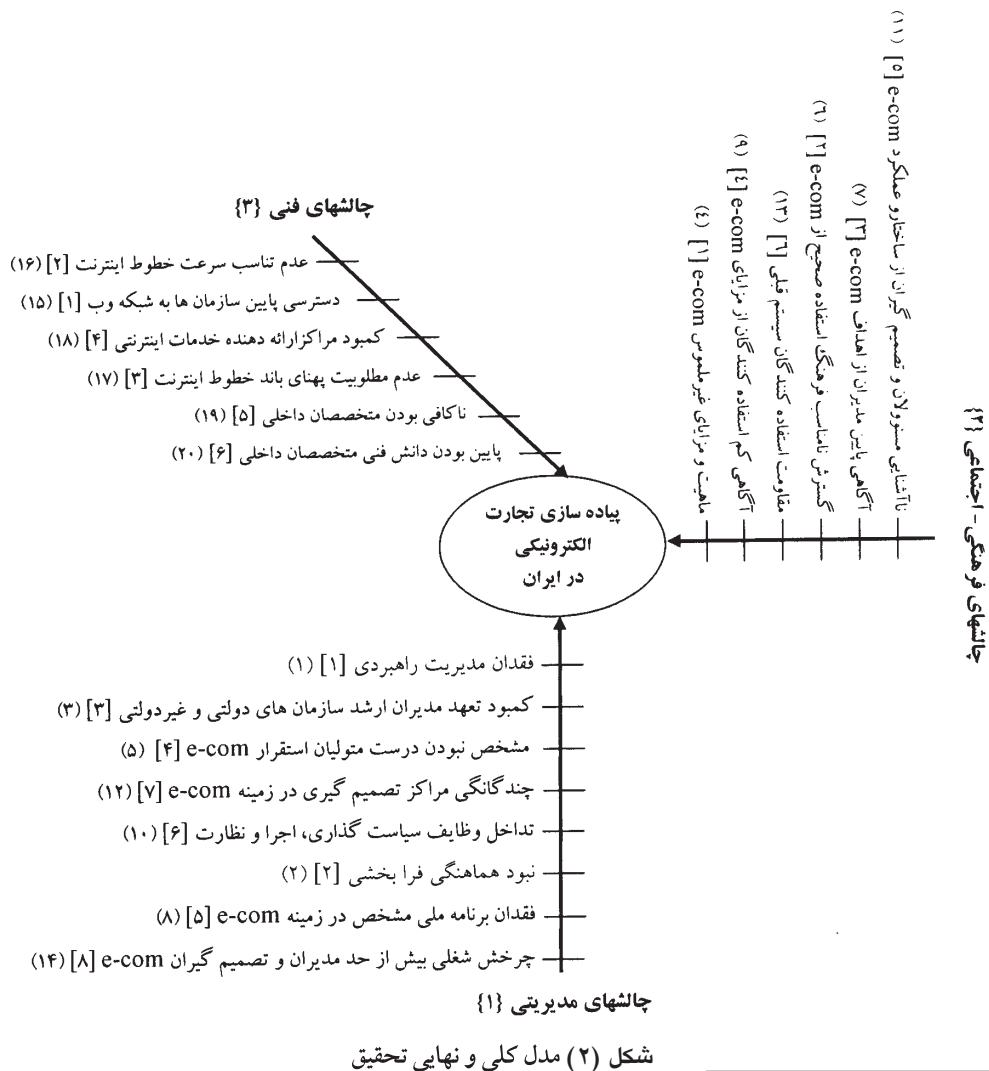 چالشهای فنی {۳}
عدم تناسب سرعت خطوط اینترنت [۲] (۱۶)
دسترسی پایین سازمان ها به شبکه وب [۱] (۱۵)
کمبود مراکزارائه دهنده خدمات اینترنتی [۴] (۱۸)
عدم مطلوبیت پهنای باند خطوط اینترنت [۳] (۱۷)
ناکافی بودن متخصصان داخلی [۵] (۱۹)
پایین بودن دانش فنی متخصصان داخلی [۶] (۲۰)
چالشهای فرهنگی - اجتماعی {۲}
ناآشنایی مسئوولان و تصمیم گیران از ساختارو عملکرد e-com [۵] (۱۱)
آگاهی پایین مدیران از اهداف e-com [۳] (۷)
گسترش نامناسب فرهنگ استفاده صحیح از e-com [۲] (٦)
مقاومت استفاده کنندگان سیستم قبلی [٦] (۱۳)
آگاهی کم استفاده کنندگان از مزایای e-com [٤] (۹)
ماهیت و مزایای غیرملموس e-com [۱] (٤)
پیاده سازی تجارت
الکترونیکی
در ایران
فقدان مدیریت راهبردی [۱] (۱)
کمبود تعهد مدیران ارشد سازمان های دولتی و غیردولتی [۳] (۳)
مشخص نبودن درست متولیان استقرار e-com [۴] (۵)
چندگانگی مراکز تصمیم گیری در زمینه e-com [۷] (۱۲)
تداخل وظایف سیاست گذاری، اجرا و نظارت [۶] (۱۰)
نبود هماهنگی فرا بخشی [۲] (۲)
فقدان برنامه ملی مشخص در زمینه e-com [۵] (۸)
چرخش شغلی بیش از حد مدیران و تصمیم گیران e-com [۸] (۱۴)
چالشهای مدیریتی {۱}
شکل (۲) مدل کلی و نهایی تحقیق